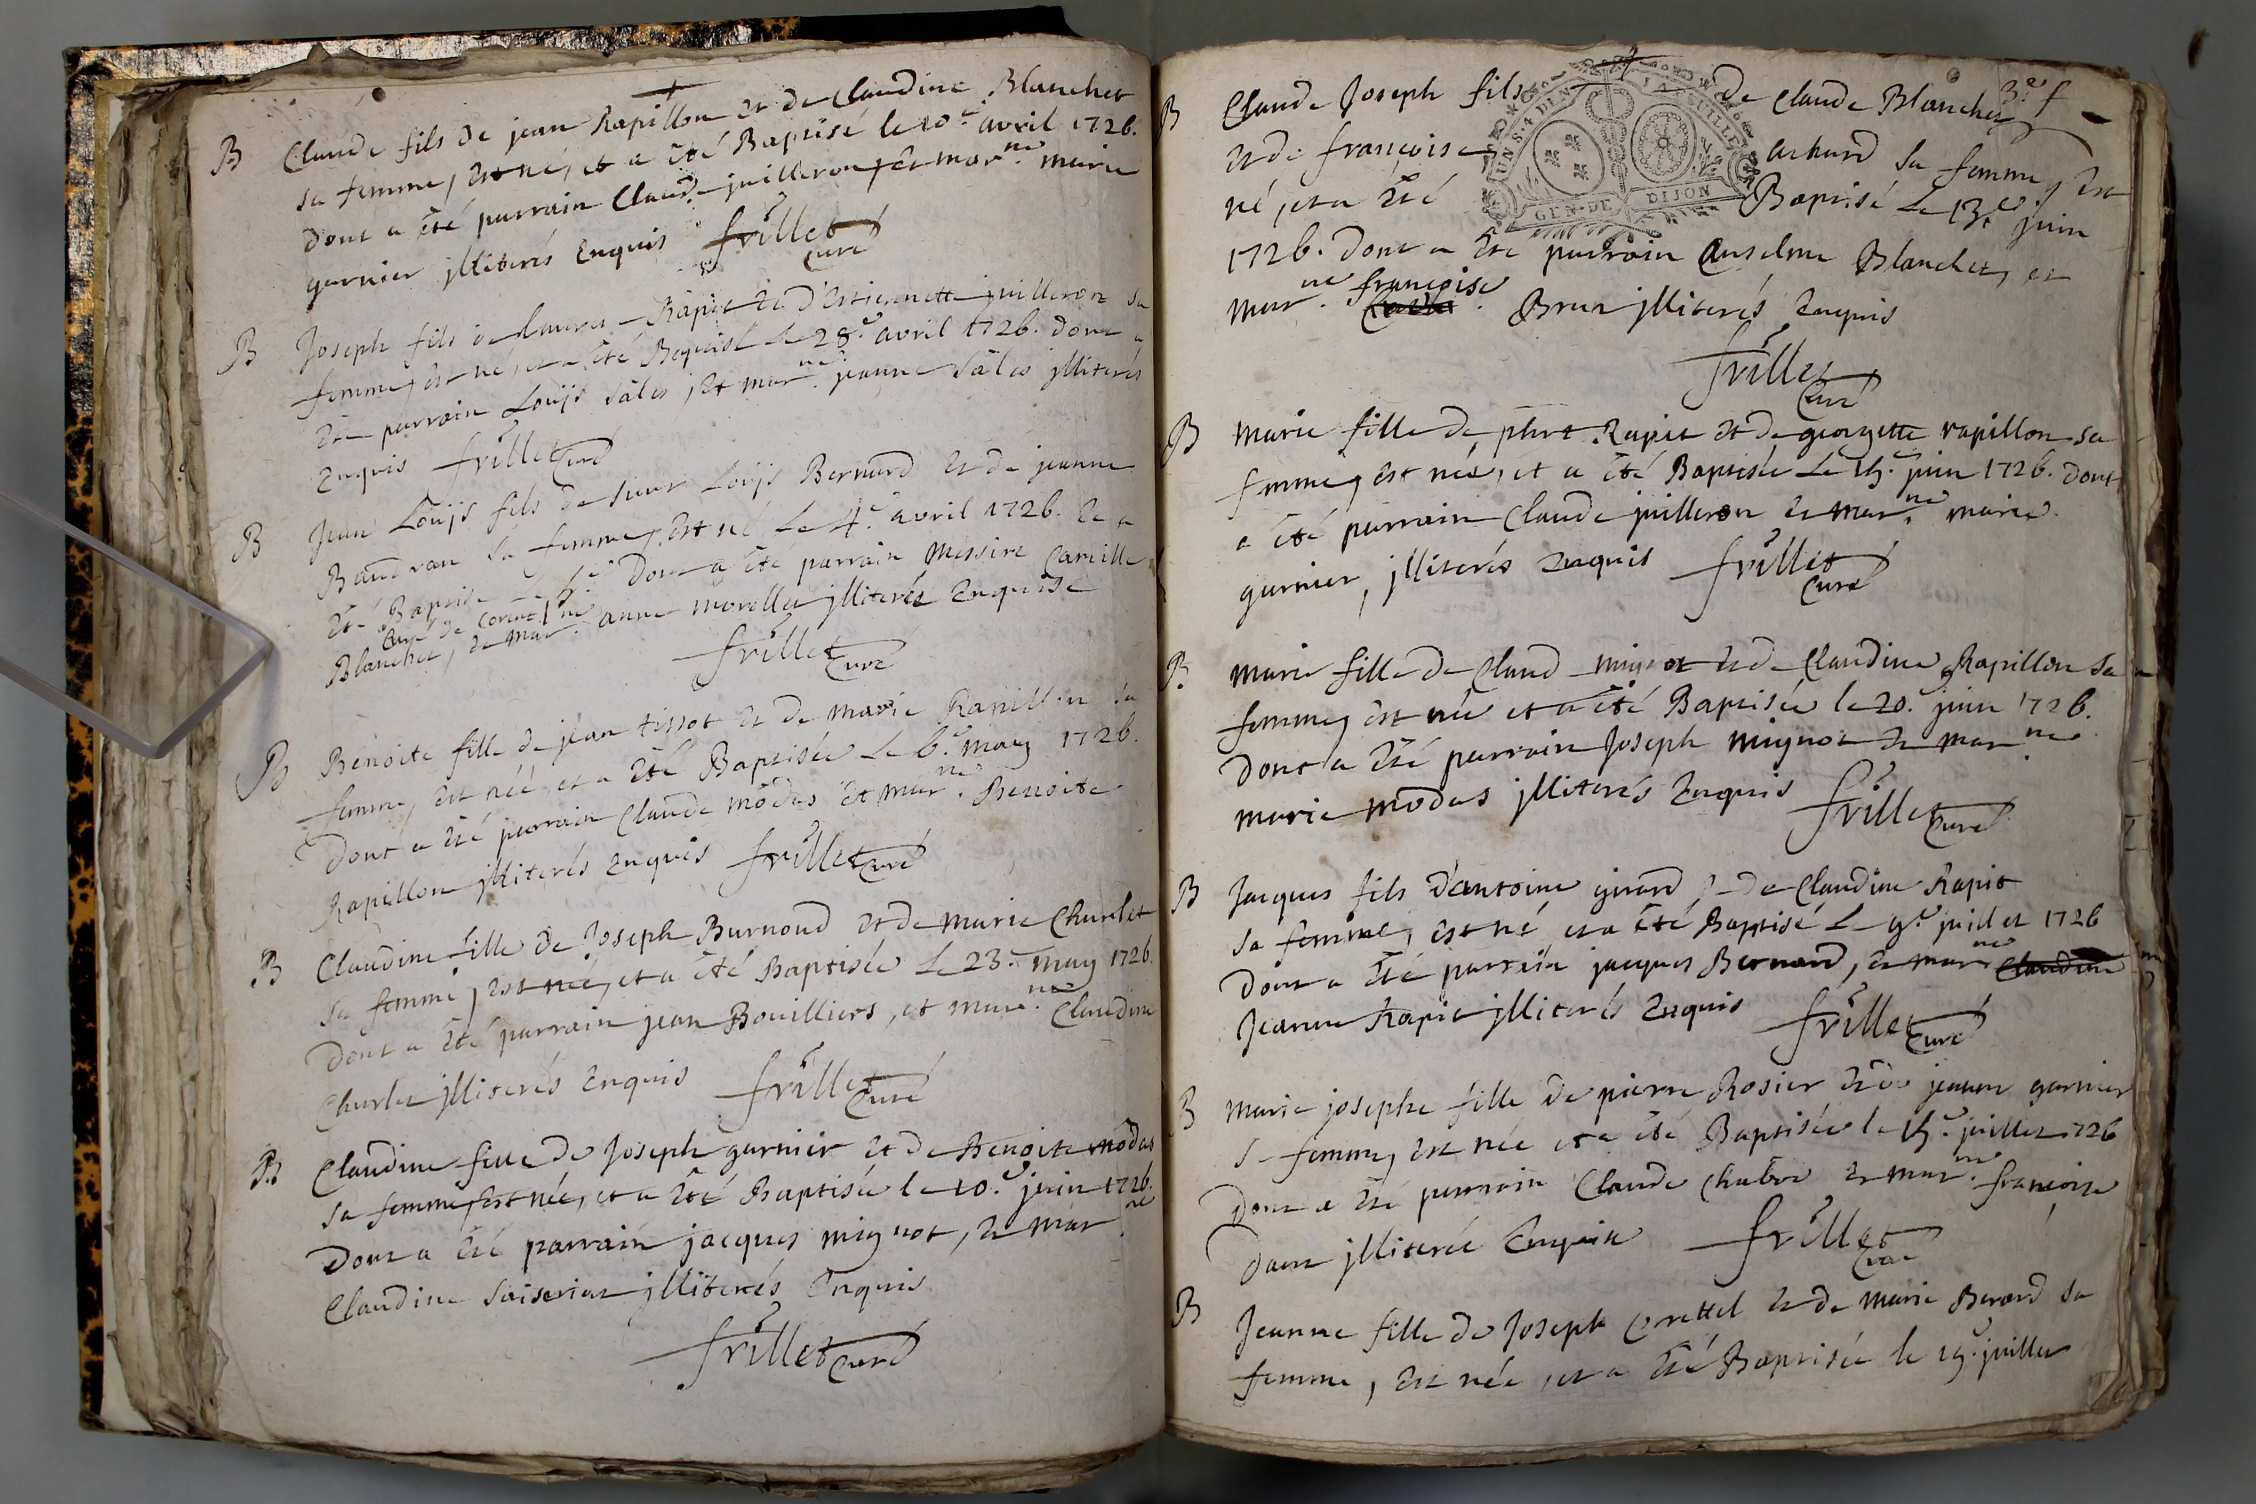 B Claude fils de jean Rapillon et de Claudine Blanchet
sa femme, est né, et a été Baptisé le 10e avril 1726.
dont a été parrain Claude juilleron, et marne marie
garnier jlliterés enquis frillet curé
B Joseph fils de laurent Rapit et d'Estiennette juilleron sa
femme, est né, et a été Baptisé le 28e avril 1726. dont a
été parrain Loüjs Sâles, et marne jeanne Sâles jlliterés
enquis frillet curé
B Jean Loüjs fils de sieur Loüjs Bernard et de jeanne
Baudran sa femme, est né le 4e avril 1726. et a
été Baptisé dont a été parrain Messire Camille
curé de
Blanchet, et marne anne morellet jlliterée enquise
frillet curé
B Benoite fille de jean tissot et de marie Rapillon sa
femme, est néé, et a été Baptisée le 6e may 1726.
dont a été parrain Claude môdas et marne Benoite
Rapillon jlliterés enquis frillet curé
B Claudine fille de Joseph Burnoud et de marie Churlet
sa femme, est née, et a été Baptisée le 23e may 1726.
dont a été parrain jean Bouilliers, et marne Claudine
Churlet jlliterés enquis frillet curé
B Claudine fille de Joseph garnier et de Benoite môdas
sa femme, est née, et a été Baptisée le 10e juin 1726.
dont a été parrain jacques mignot, et marne
Claudine jlliterés enquis
frillet curé
3e f
B Claude Joseph fils de Claude Blanchet
et de françoise achard sa femme, est
né, et a été Baptisé le 13e juin
1726. dont a été parrain Anselme Blanchet, et
marne françoise Brun jlliterés enquis
UN.S.4.DEN. LA FEUILLE
GEN.DE DIJON
frillet curé
B marie fille de phrt Rapit et de georgette rapillon sa
femme, est née, et a été Baptisée le 15e juin 1726. dont
a été parrain Claude juilleron et marne marie
garnier, jlliterés enquis frillet curé
B marie fille de Claud mignot et de Claudine Rapillon sa
femme, est née et a été Baptisée le 20e juin 1726.
dont a été parrain Joseph mignot et marne
marie môdas jlliterés enquis frillet curé
B Jacques fils d'antoine girard de Claudine Rapit
sa femme, est né et a été Baptisé le 9e juillet 1726
dont a été parrain jacques Bernard, et marne Claudine
Jeanne Rapit jlliterés enquis frillet curé
B marie josephe fille de pierre Rosier et de jeanne garnier
sa femme, est née et a été Baptisée le 15e juillet 1726
dont a été parrain Claude et marne françoise
jlliterée enquise frillet curé
B Jeanne fille de Joseph et de marie Berard sa
femme, est née, et a été Baptisée le 19e juillet